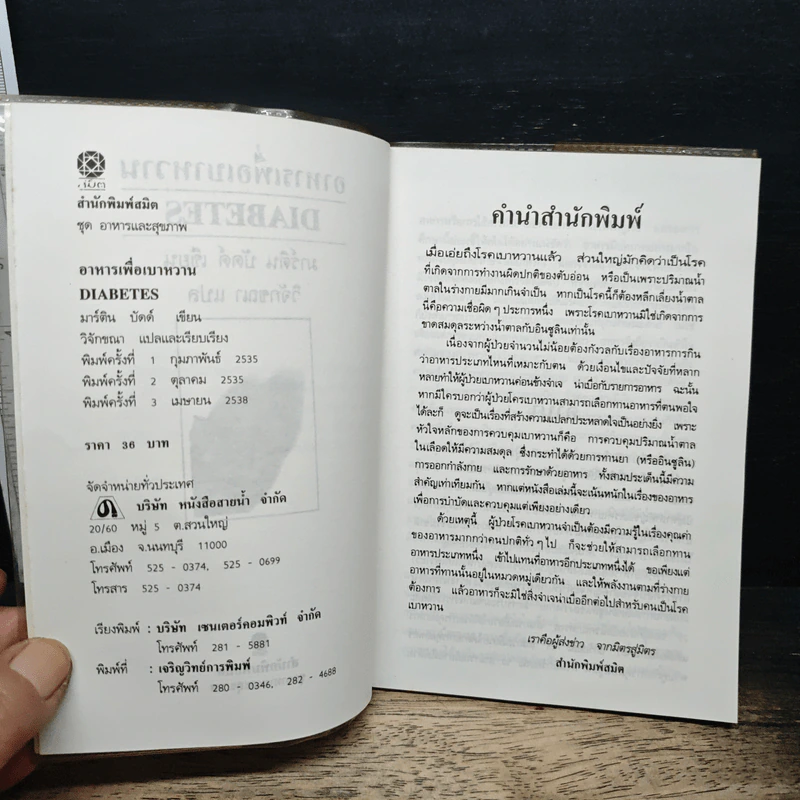 สมิต
สำนักพิมพ์สมิต
ชุด อาหารและสุขภาพ
อาหารเพื่อเบาหวาน
DIABETES
มาร์ติน บัดด์ เขียน
วิจักขณา แปลและเรียบเรียง
พิมพ์ครั้งที่ 1 กุมภาพันธ์ 2535
พิมพ์ครั้งที่ 2 ตุลาคม 2535
พิมพ์ครั้งที่ 3 เมษายน 2538
ราคา 36 บาท
จัดจำหน่ายทั่วประเทศ
บริษัท หนังสือสายน้ำ จำกัด
20/60 หมู่ 5 ต.สวนใหญ่
อ.เมือง จ.นนทบุรี 11000
โทรศัพท์ 525 - 0374, 525 - 0699
โทรสาร 525 - 0374
เรียงพิมพ์ : บริษัท เซนเตอร์คอมพิวท์ จำกัด
โทรศัพท์ 281 - 5881
พิมพ์ที่ : เจริญวิทย์การพิมพ์
โทรศัพท์ 280 - 0346, 282 - 4688
คำนำสำนักพิมพ์
เมื่อเอ่ยถึงโรคเบาหวานแล้ว ส่วนใหญ่มักคิดว่าเป็นโรค
ที่เกิดจากการทำงานผิดปกติของตับอ่อน หรือเป็นเพราะปริมาณน้ำ
ตาลในร่างกายมีมากเกินจำเป็น หากเป็นโรคนี้ก็ต้องหลีกเลี่ยงน้ำตาล
นี่คือความเชื่อผิด ๆ ประการหนึ่ง เพราะโรคเบาหวานมิใช่เกิดจากการ
ขาดสมดุลระหว่างน้ำตาลกับอินซูลินเท่านั้น
เนื่องจากผู้ป่วยจำนวนไม่น้อยต้องกังวลกับเรื่องอาหารการกิน
ว่าอาหารประเภทไหนที่เหมาะกับตน ด้วยเงื่อนไขและปัจจัยที่หลาก
หลายทำให้ผู้ป่วยเบาหวานค่อนข้างจำเจ น่าเบื่อกับรายการอาหาร ฉะนั้น
หากมีใครบอกว่าผู้ป่วยโครเบาหวานสามารถเลือกทานอาหารที่ตนพอใจ
ได้ละก็ ดูจะเป็นเรื่องที่สร้างความแปลกประหลาดใจเป็นอย่างยิ่ง เพราะ
หัวใจหลักของการควบคุมเบาหวานก็คือ การควบคุมปริมาณน้ำตาล
ในเลือดให้มีความสมดุล ซึ่งกระทำได้ด้วยการทานยา (หรืออินซูลิน)
การออกกำลังกาย และการรักษาด้วยอาหาร ทั้งสามประเด็นนี้มีความ
สำคัญเท่าเทียมกัน หากแต่หนังสือเล่มนี้จะเน้นหนักในเรื่องของอาหาร
เพื่อการบำบัดและควบคุมแต่เพียงอย่างเดียว
ด้วยเหตุนี้ ผู้ป่วยโรคเบาหวานจำเป็นต้องมีความรู้ในเรื่องคุณค่า
ของอาหารมากกว่าคนปกติทั่ว ๆ ไป ก็จะช่วยให้สามารถเลือกทาน
อาหารประเภทหนึ่ง เข้าไปแทนที่อาหารอีกประเภทหนึ่งได้ ขอเพียงแต่
อาหารที่ทานนั้นอยู่ในหมวดหมู่เดียวกัน และให้พลังงานตามที่ร่างกาย
ต้องการ แล้วอาหารก็จะมิใช่สิ่งจำเจน่าเบื่ออีกต่อไปสำหรับคนเป็นโรค
เบาหวาน
เราคือผู้ส่งข่าว จากมิตรสู่มิตร
สำนักพิมพ์สมิต